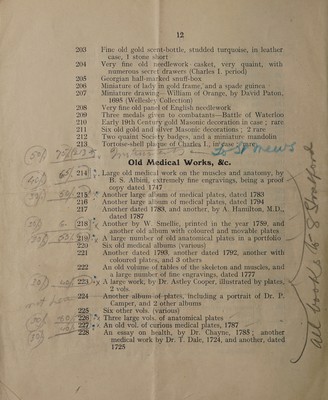 12
203 Fine old gold scent-bottle, studded turquoise, in leather
case, 1 stone short
204 Very fine old needlework casket, very quaint, with
numerous secret drawers (Charles I. period)
205 Georgian hall-marked snuff-box
206 Miniature of lady in gold frame, and a spade guinea
207 Miniature drawing—William of Orange, by David Paton,
1695 (Wellesley Collection)
208 Very fine old panel of English needlework
209 Three medals given to combatants—Battle of Waterloo
210 Early 19th Century gold Masonic decoration in case; rare
211 Six old gold and silver Masonic decorations; 2 rare
212 Two quaint Society badges, and a miniature mandolin
213 Tortoise-shell plaque of Charles I., in case
Old Medical Works, &c.
214 Large old medical work on the muscles and anatomy, by
B. S. Albini, extremely fine engravings, being a proof
copy dated 1747
215 Another large album of medical plates, dated 1783
216 Another large album of medical plates, dated 1794
217 Another dated 1783, and another, by A. Hamilton, M.D.,
dated 1787
218 Another by W. Smellie, printed in the year 1789, and
another old album with coloured and movable plates
219 A large number of old anatomical plates in a portfolio
220 Six old medical albums (various)
221 Another dated 1793, another dated 1792, another with
coloured plates, and 3 others
222 An old volume of tables of the skeleton and muscles, and
a large number of fine engravings, dated 1777
223 A large work, by Dr. Astley Cooper, illustrated by plates,
2 vols.
224 Another album of plates, including a portrait of Dr. P.
Camper, and 2 other albums
225 Six other vols. (various)
226 Three large vols. of anatomical plates
227 An old vol. of curious medical plates, 1787
228 An essay on health, by Dr. Chayne, 1785; another
medical work by Dr. T. Dale, 1724, and another, dated
1725
All books to